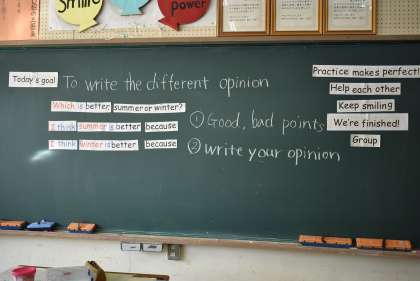 Smile
power
Today's goal
To write the different opinion
Which is better, summer or winter?
I think summer is better because
I think winter is better because
① Good, bad points
② write your opinion
Practice makes perfect!
Help each other
Keep smiling
We're finished!
Group